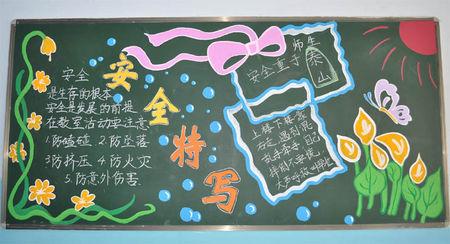 安全
是生存的根本
安全是发展的前提
在教室活动要注意
1.防磕碰 2.防坠落
3防挤压 4防火灾
5.防意外伤害
安全特写
师生
安全重于
泰山
上楼下楼靠
右走